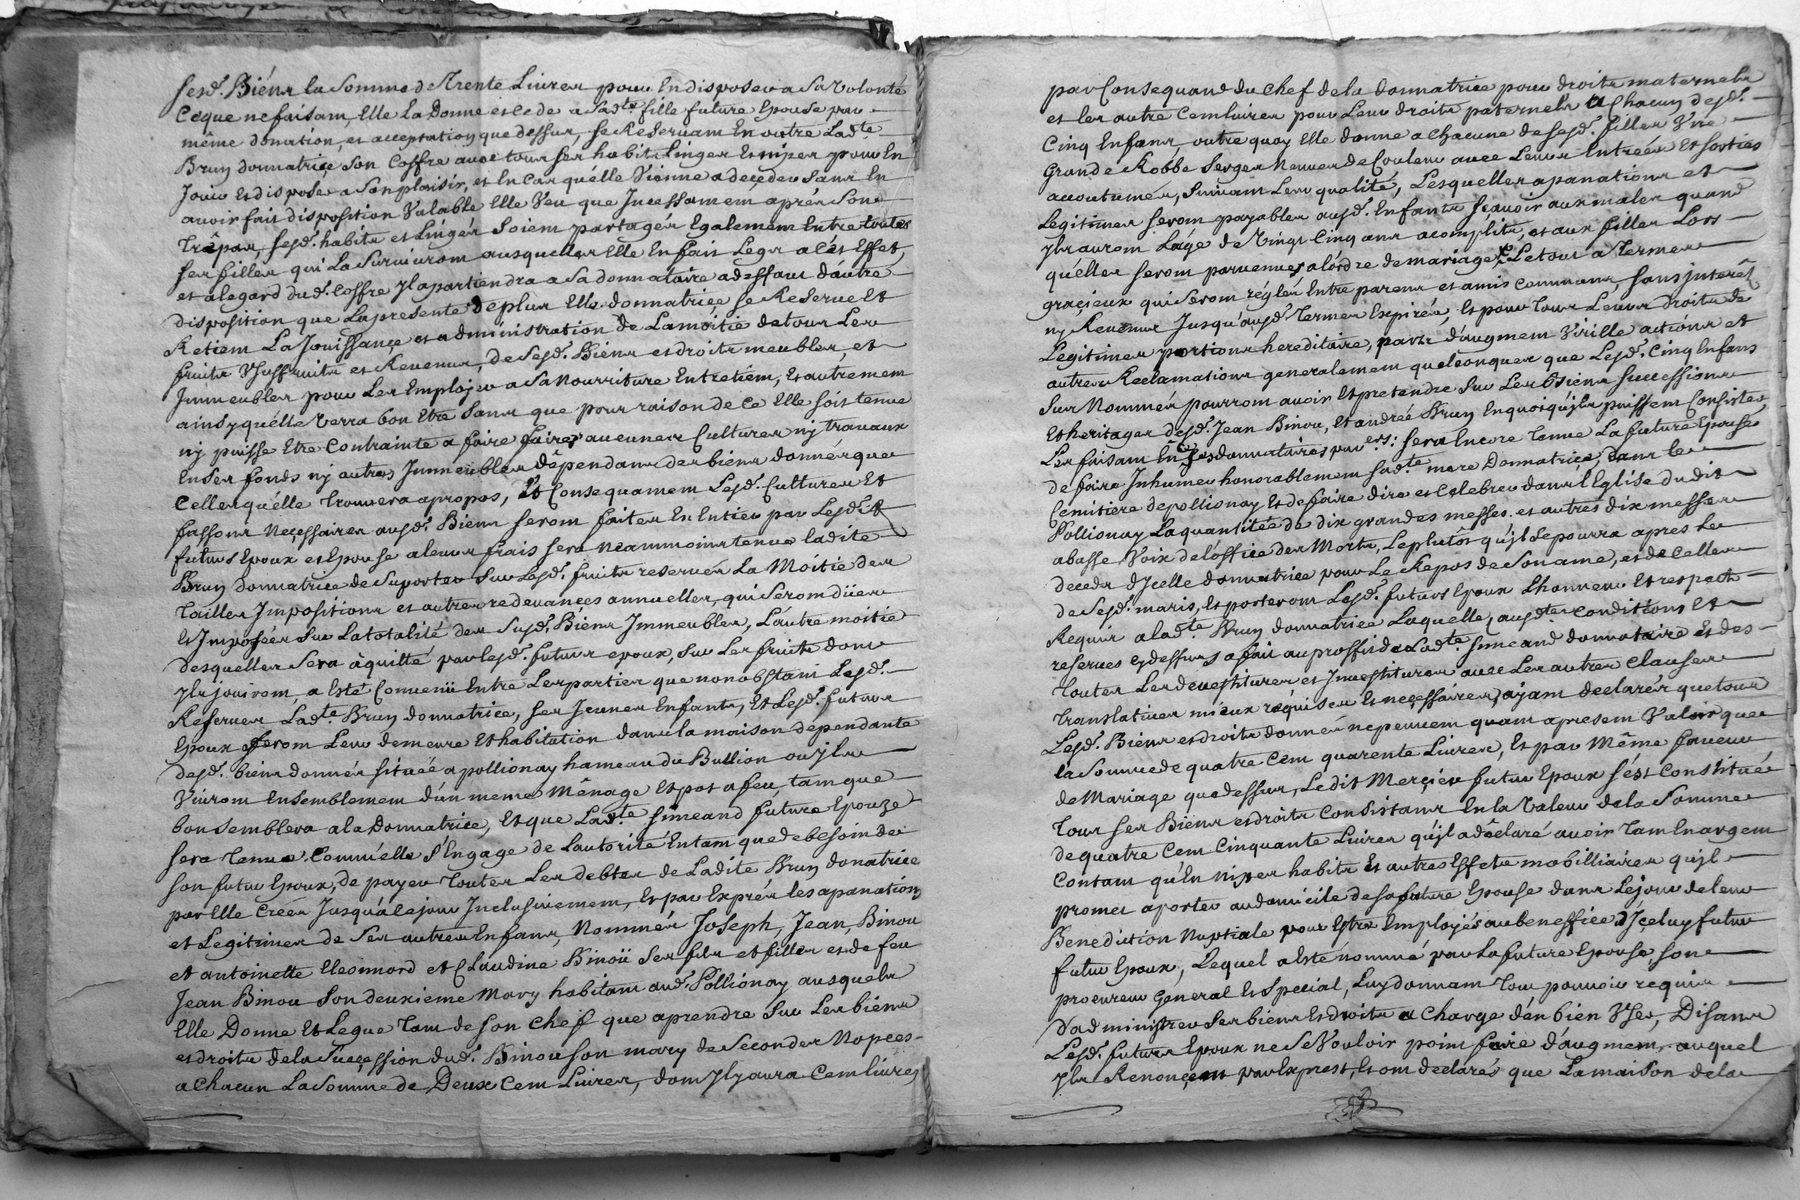 sesd. Biéns la Somme de Trente Livres pour En disposer a Sa Volonté
Ceque nefaisant, Elle La Donne et Cede a Sadte fille future Epouse par
même donation, et acceptation que dessus, se Reservant En outre Ladte
Brun donnatrice Son Coffre avec tous ses habits Linges et nipes pour En
Jouir et disposer a Son plaisir, et En Cas qu'élle Vienne a deçeder Sans En
avoir fait disposition Valable Elle Veu que Incessament aprés Son
Trêpas, sesd. habits et Linges Soient partagés Egalement Entre toutes
ses filles qui La Survivront ausquelles Elle En fait Legs a Cét Effet,
et a legard dud. Coffre Il apartiendra a Sa donnataire a deffaut d'áutre
disposition que La presente De plus Elle donnatriçe se Reserve Et
Retient La Jouissançe et administration de La moitié de tous Les
fruits Usuffruits et Revenus, de Sesd. Biéns et droits meubles, et
Immeubles pour Les Employer a Sa Nourriture Entretiém, Et autrement
ainsy qu'élle Verra bon Etre Sans que pour raison de Ce Elle soit tenue
ny puisse Etre Contrainte a faire faire aucunes Cultures ny travaux
En Ses fonds ny autres Immeubles dépendans des biens donnés que
Celles qu'élle trouvera apropos, Et Consequament Lesd. Cultures Et
fassons Necessaires ausd. Biens seront faites En Entier par Lesd.
futurs Epoux et Epouse a leurs frais sera neammoins tenue ladite
Brun donnatrice de Suporter Sur Lesd. fruits reservés La Moitié des
Tailles Impositions et autres redevançes annuelles, qui Seront düés
Et Imposées Sur La totalité des Susd. Biéns Immeubles, L'autre moitié
desquelles Sera âquitté par lesd. futurs epoux, Sur Les fruits dont
Ils jouiront, a Esté Convenü Entre Les parties que nonobstant Lesd.
Reserves Ladte Brun donnatrice, ses Jeunes Enfants, Et Lesd. futurs
Epoux feront Leur demeure Et habitation dans la maison dépendante
desd. biéns donnés située a pollionay hameau du Bullion ou Ils
Vivront Ensemblement d'ún meme Ménage Et pot a feu, tant que
bon Semblera a la Donnatrice, Et que Ladte Simeand future Epouze
sera tenue Comm'elle s'Engage de L'autorité En tant que de besoin de
son futur Epoux, de payer toutes Les debtes de Ladite Brun donatrice
par Elle Créés Jusqu'á Ce jour Inclusivement, Et par Exprés les apanations
et Legitimes de Ses autres Enfans, Nommés Joseph, Jean, Binou
et antoinette Eleonnord et Claudine Binoü Ses fils et filles et de feu
Jean Binou Son deuxieme Mary habitant aud. Pollionay ausquels
Elle Donne Et Legue tant de son Chef que aprendre Sur Les biens
et droits de la Suçcession dud. Binou son mary de Secondes Nopces
a Chacun La Somme de Deux Cent Livres, dont Il y aura Cent livres
par Consequand du Chef de la donnatrice pour droits maternels
et les autre Cent livres pour Leur droits paternels a Chacun desd.
Cinq Enfans, outre quoy Elle donne a Chacune de Sesd. filles Une
Grande Robbe Serges Neuves de Couleur avec Leurs Entrées Et sorties
accoutumés, Suivant Leur qualité, Lesquelles apanations et
Legitimes seront payables ausd. Enfants sçavoir aux males quand
Ils auront L'áge de Vingt Cinq ans acomplits, et aux filles Lors
qu'élles seront parvenues a l'órdre de mariage, Le tout a termes
graçieux qui seront réglés Entre parens et amis Communs, sans interêt
ny Revenus Jusqu'ausd. termes Expirés, Et pour tous Leurs droits de
Legitimes portions hereditaire, parts d'augment Virille actions et
autres Reclamations generalement quelconques que Lesd. Cinq Enfans
Sus Nommés pourront avoir Et pretendre Sur Les Biens Successions
Et heritages desd. Jean Binou, Et andreé Brun En quoi qu'ils puissent Consister,
Les faisant En ses donnataires par. sera Encore tenue La future Epouse
de faire Inhumer honorablement sadte mere Donnatrice, dans le
Cemitiere de pollionay Et de faire dire et Celebrer dans l'Eglise dudit
Pollionay La quantitée de dix grandes messes, et autres dix messes
abasse Voix de l'office des Morts, Le plutôt qu'il Se pourra aprés Le
deces d'Icelle donnatrice pour Le Repos de Son ame, et de Celle
de Sesd. maris, Et porteront Lesd. futurs Epoux L'honneur Et respect
Requis a ladte Brun donnatrice Laquelle, ausd. Conditions Et
reserves Cydessus a fait au proffit de Ladte Simeand donnataire Et des
toutes Les devestitures et Investitures avec Les autres Clauses
translatives mieux requises Et neçessaires, ayant declarér que tous
Lesd. Biéns et droits donnés ne peuvent quant apresent Valoir que
la Somme de quatre Cent quarente Livres, Et par Même faveur
de Mariage que dessus, Ledit Merçier futur Epoux s'ést Constitué
tous ses Biens et droits Consistans En la Valeur de la Somme
de quatre Cent Cinquante Livres qu'il a dêclaré avoir tant En argent
Contant qu'En nipes habits Et autres Effets mobilliaires qu'il
promet aporter au domicile de sa future Epouse dans Lejour de leur
Benediction Nuptiale pour Estre Employés au beneffice d'Iceluy futur
futur Epoux, Lequel a Esté nommé par La future Epouse Son
procureur General Et Special, Luy donnant tout pouvoir requis
D'administrer Ses biens Et droits a Charge d'én bien User, Disans
Lesd. futurs Epoux ne Se Vouloir point faire d'augment, auquel
Ils Renonçent par Exprest, Et ont declarés que La maison de la